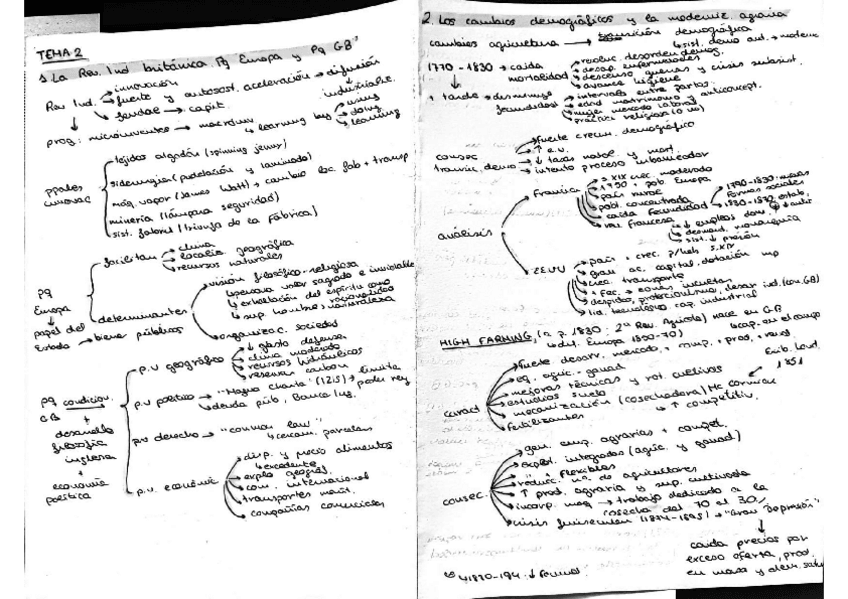 TEMA 2
1. La Rev. Ind británica. Pq Europa y Pq GB?
Rev. Ind.
innovación
fuerte y autosost. aceleración → difusión
feudal → capit.
industrializ.
prog: microinventos → macroinv
learning by
using
doing
learning
ppales innovac
tejidos algodón (spinning jenny)
siderurgia (pudelación y laminado)
máq. vapor (James Watt) → cambio loc. fab + transp
minería (lámpara seguridad)
sist. fabril (triunfo de la fábrica)
Pq Europa
facilitan
clima
localiz. geográfica
recursos naturales
determinantes
visión filosófico-religiosa
persona valor sagrado e inviolable
exhalación del espíritu como racionalidad
sup. hombre naturaleza
organizac. sociedad
papel del Estado → bienes públicos
pq condicion. GB
+
desarrollo filosofía inglesa
+
economía política
p.v geográfico
↓ gasto defensa
clima moderado
recursos hidráulicos
reservas carbón
p.v político → "Magna Charta" (1215) → limita poder rey
deuda púb, Banca Ing.
p.v derecho → "common law"
cercam. parcelas
p.v. económic
disp. y precio alimentos
excedente
explo geográf.
com. internacional
transportes marít.
compañías comerciales
2. Los cambios demográficos y la moderniz. agraria
cambios agricultura → transición demográfica
sist. demo ant. → modern
1770-1830 → caída mortalidad
reduc. desorden demog.
desap. enfermedades
descenso guerras y crisis subsist.
avance higiene
+ tarde → disminuye fecundidad
intervalos entre partos
edad matrimonio y anticoncept.
mujer mercado laboral
práctica religiosa (o no)
consec transic. demo
fuerte crecim. demográfico
↑ e.v.
↓ tasas natal. y mort.
intento proceso urbanizador
análisis
Francia
S XIX crec. moderado
1750 + pob. Europa
país rural
pobl. concentrada
caída fecundidad
1790-1830: nuevas formas sociales
1830-1870: estab.
rev. francesa
↓ empleos dom.
desmant. monarquía
sist. ↓ presión
EEUU
país + crec. p/hab S. XIX
gran ac. capital. dotación mp
crec. transporte
+ fac. → zonas incultas
despidos, proteccionismo, desar. ind. (con GB)
lid. tecnológico cap. industrial
HIGH FARMING, (a p. 1830: 2ª Rev. Agrícola) nace en GB
dif. Europa 1850-70)
cap. en el campo
caract
fuerte desarr. mercado, + sup, + prod, + rend.
eq. agríc - ganad
mejoras técnicas y rot. cultivos
estudios suelo
mecanización (cosechadora) Mc Cormick
↑ competitiv.
Exib. Lond. 1851
fertilizantes
consec.
gen. emp. agrarias + compet.
explot. integradas (agríc. y ganad)
" + flexibles
reduc. nº de agricultores
↑ prod. agraria y sup. cultivada
incorp. maq → trabajo dedicado a la cosecha del 70 al 30%
crisis finisecular (1874-1895) → "Gran Depresión"
caída precios por exceso oferta, prod. en masa y